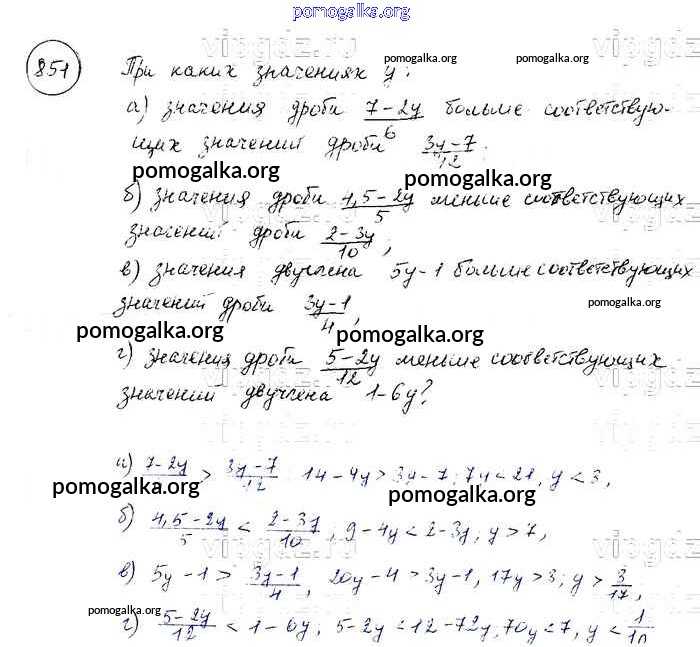 pomogalka.org
851 При каких значениях y:
pomogalka.org
pomogalka.org
а) значения дроби (7-2y)/6 больше соответствую-
щих значений дроби (3y-7)/12;
pomogalka.org
pomogalka.org
б) значения дроби (4,5-2y)/5 меньше соответствующих
значений дроби (2-3y)/10;
в) значения двучлена 5y-1 больше соответствующих
значений дроби (3y-1)/4,
pomogalka.org
pomogalka.org
pomogalka.org
г) значения дроби (5-2y)/12 меньше соответствующих
значений двучлена 1-6y?
vipgdz.ru
а) (7-2y)/ > (3y-7)/12 14-4y > 3y-7; 7y < 21, y < 3,
pomogalka.org
pomogalka.org
б) (4,5-2y)/5 < (2-3y)/10; 9-4y < 2-3y; y > 7,
в) 5y-1 > (3y-1)/4, 20y-4 > 3y-1, 17y > 3; y > 3/17,
pomogalka.org
pomogalka.org
г) (5-2y)/12 < 1-6y; 5-2y < 12-72y, 70y < 7, y < 1/10